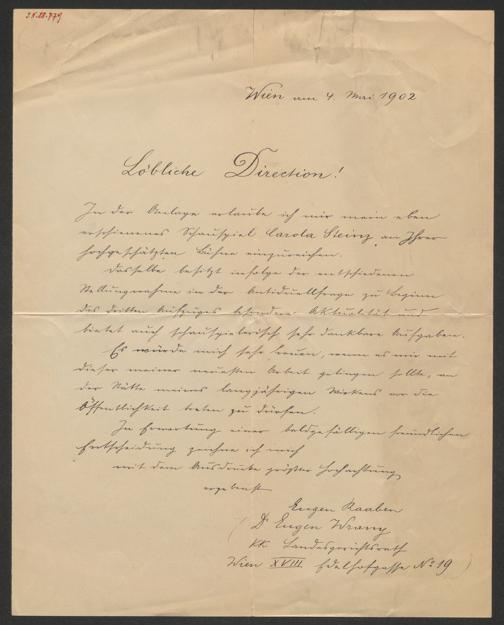 Wien am 4. Mai 1902
Löbliche Direction!
In der Anlage erlaube ich mir mein eben
erschienenes Schauspiel Carola Steinz an Ihrer
hochgeschätzten Bühne einzureichen.
Dasselbe besitzt infolge der entschiedenen
Stellungnahme in der Antiduellfrage zu Beginn
des dritten Aufzuges besondere Aktualität und
bietet auch schauspielerisch sehr dankbare Aufgaben.
Es würde mich sehr freuen, wenn es mir mit
dieser meiner neuesten Arbeit gelingen sollte, an
der Stätte meines langjährigen Wirkens vor die
Öffentlichkeit treten zu dürfen.
In Erwartung einer baldgefälligen freundlichen
Entscheidung zeichne ich mich
mit dem Ausdrucke größter Hochachtung
ergebenst
Eugen Raaben
(Dr Eugen Wrany
kk Landesgerichtsrath
Wien XVIII Edelhofgasse No 19)